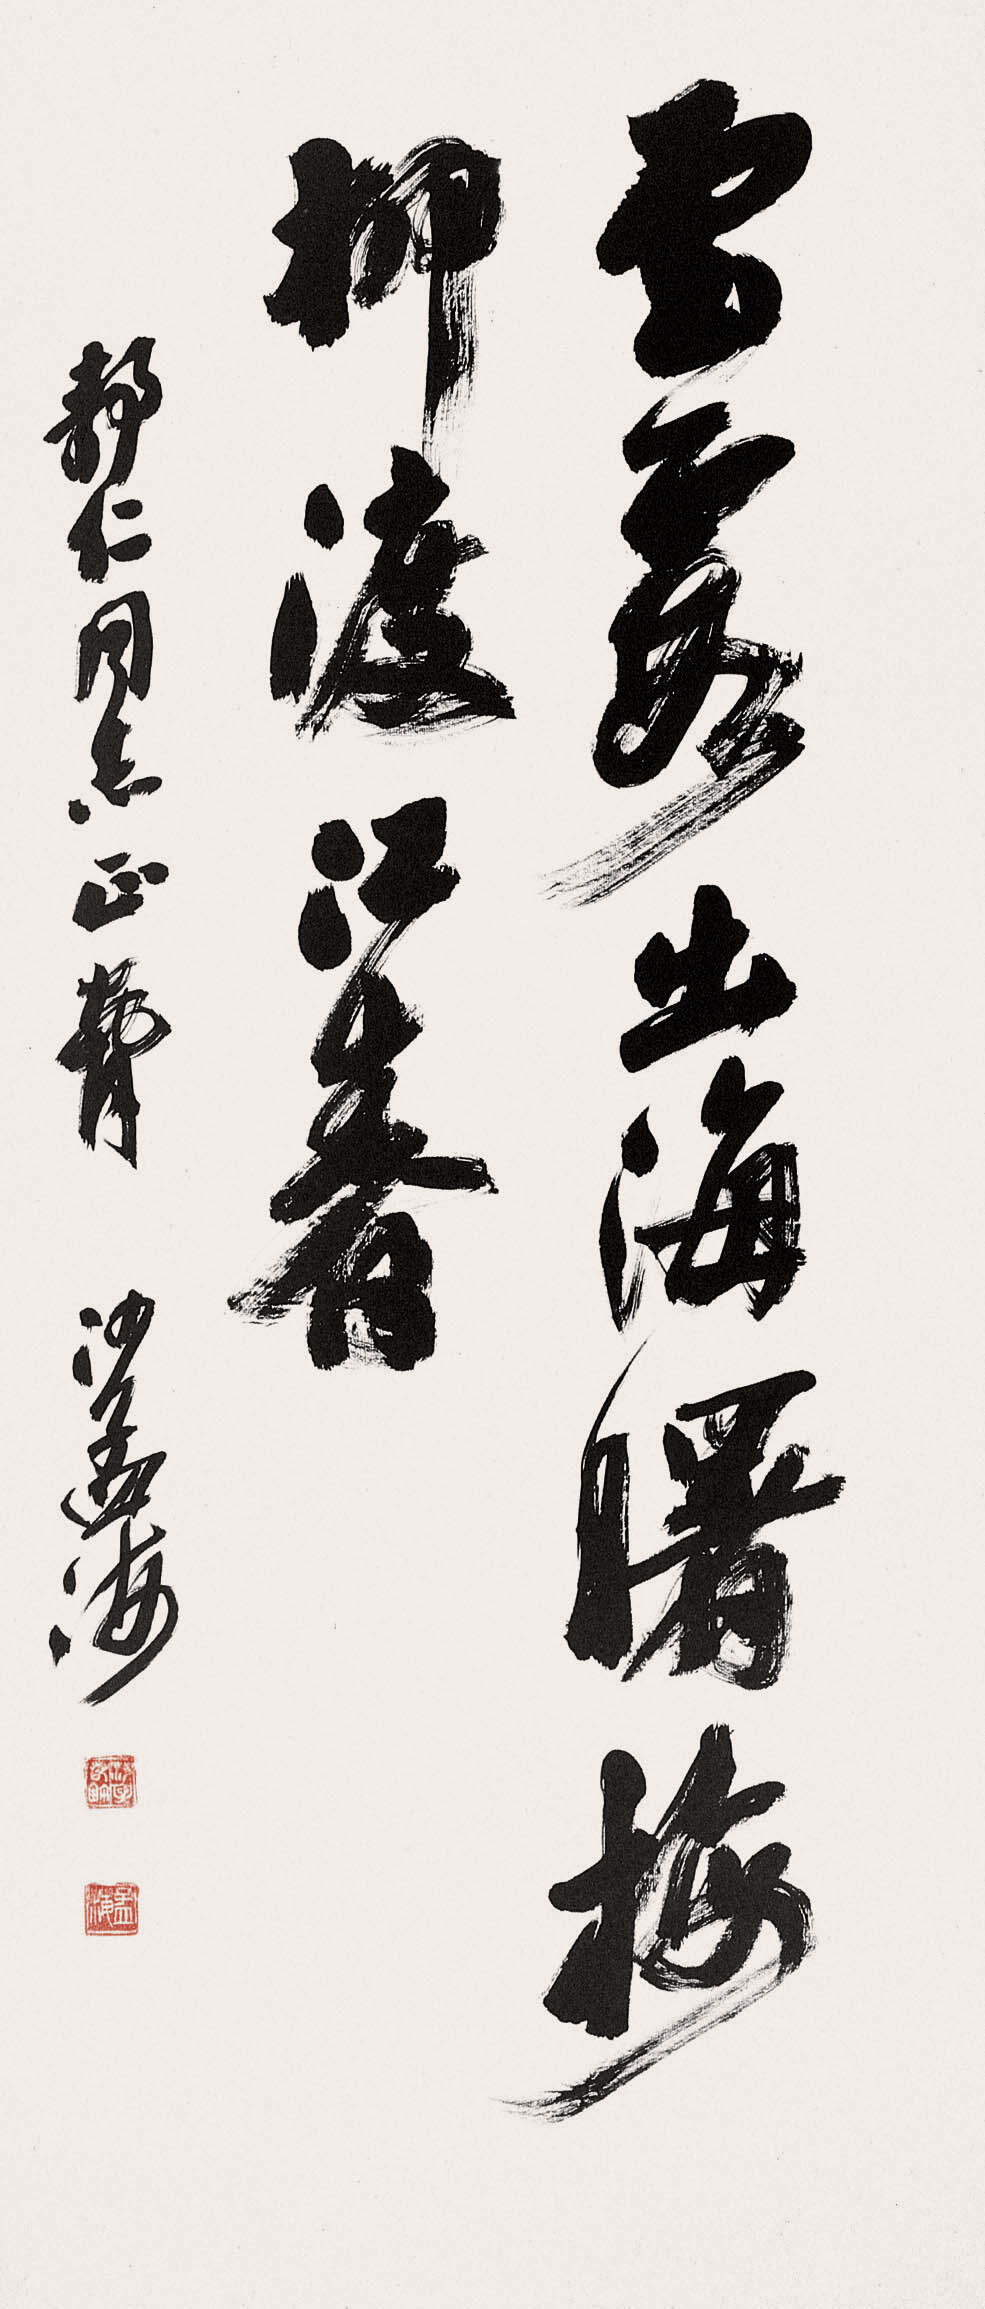 雲霞出海曙梅
柳渡江春
静仁同志正臂
沙孟海
孟海